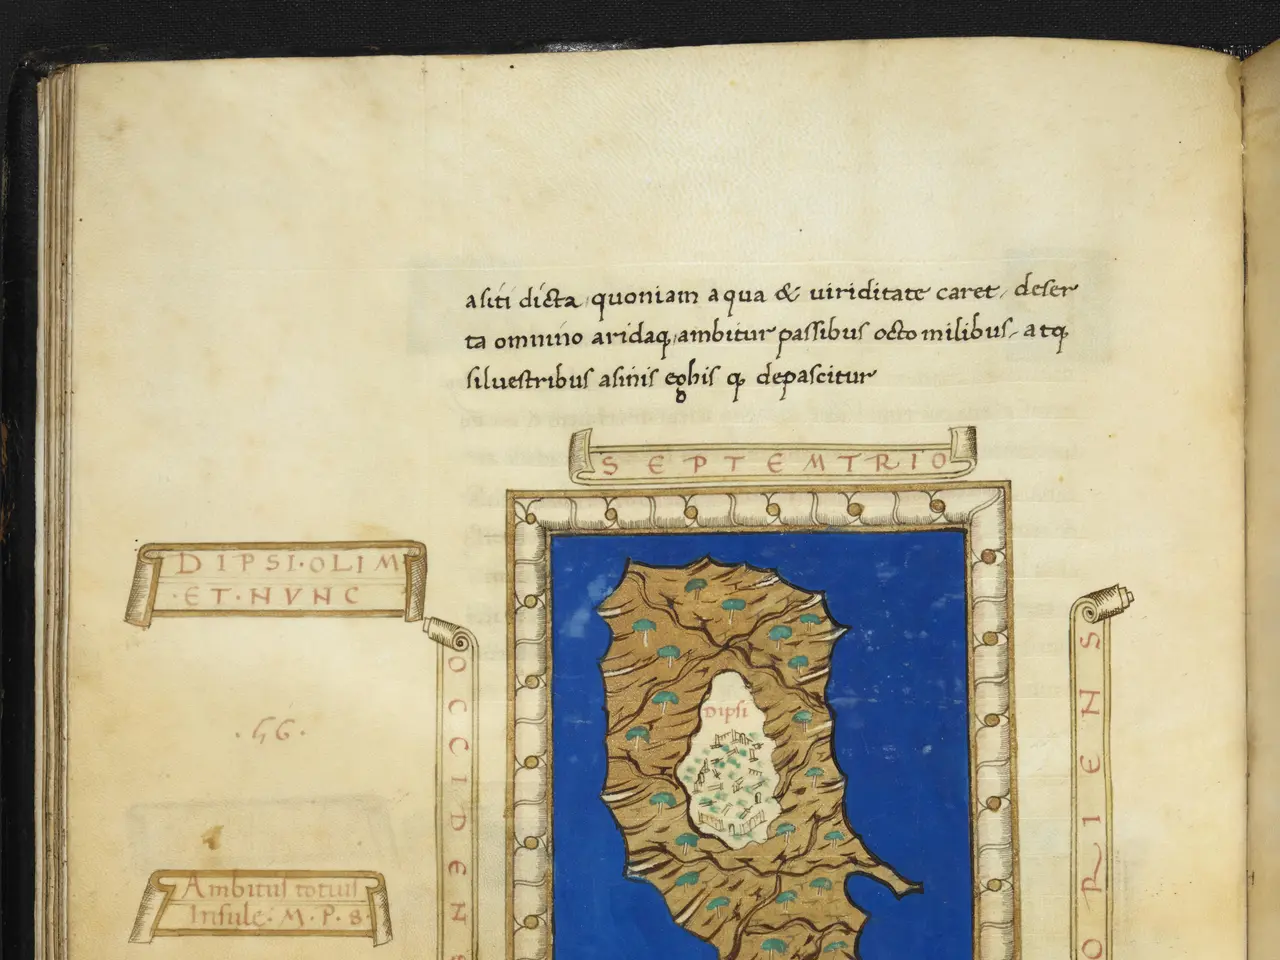 asiti dicta quoniam aqua & uiriditate caret, deser
ta omnino aridaq, ambitur passibus octo milibus, atq
siluestribus asinis eghis q depascitur
SEPTEMTRIO
DIPSI·OLIM
·ET·NVNC
OCCIDENS
ORIENS
Dipsi
·56·
Ambitus totius
Insule·M·P·8·